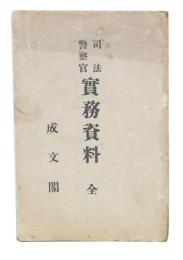 司法
警察官
實務資料 全
成文閣